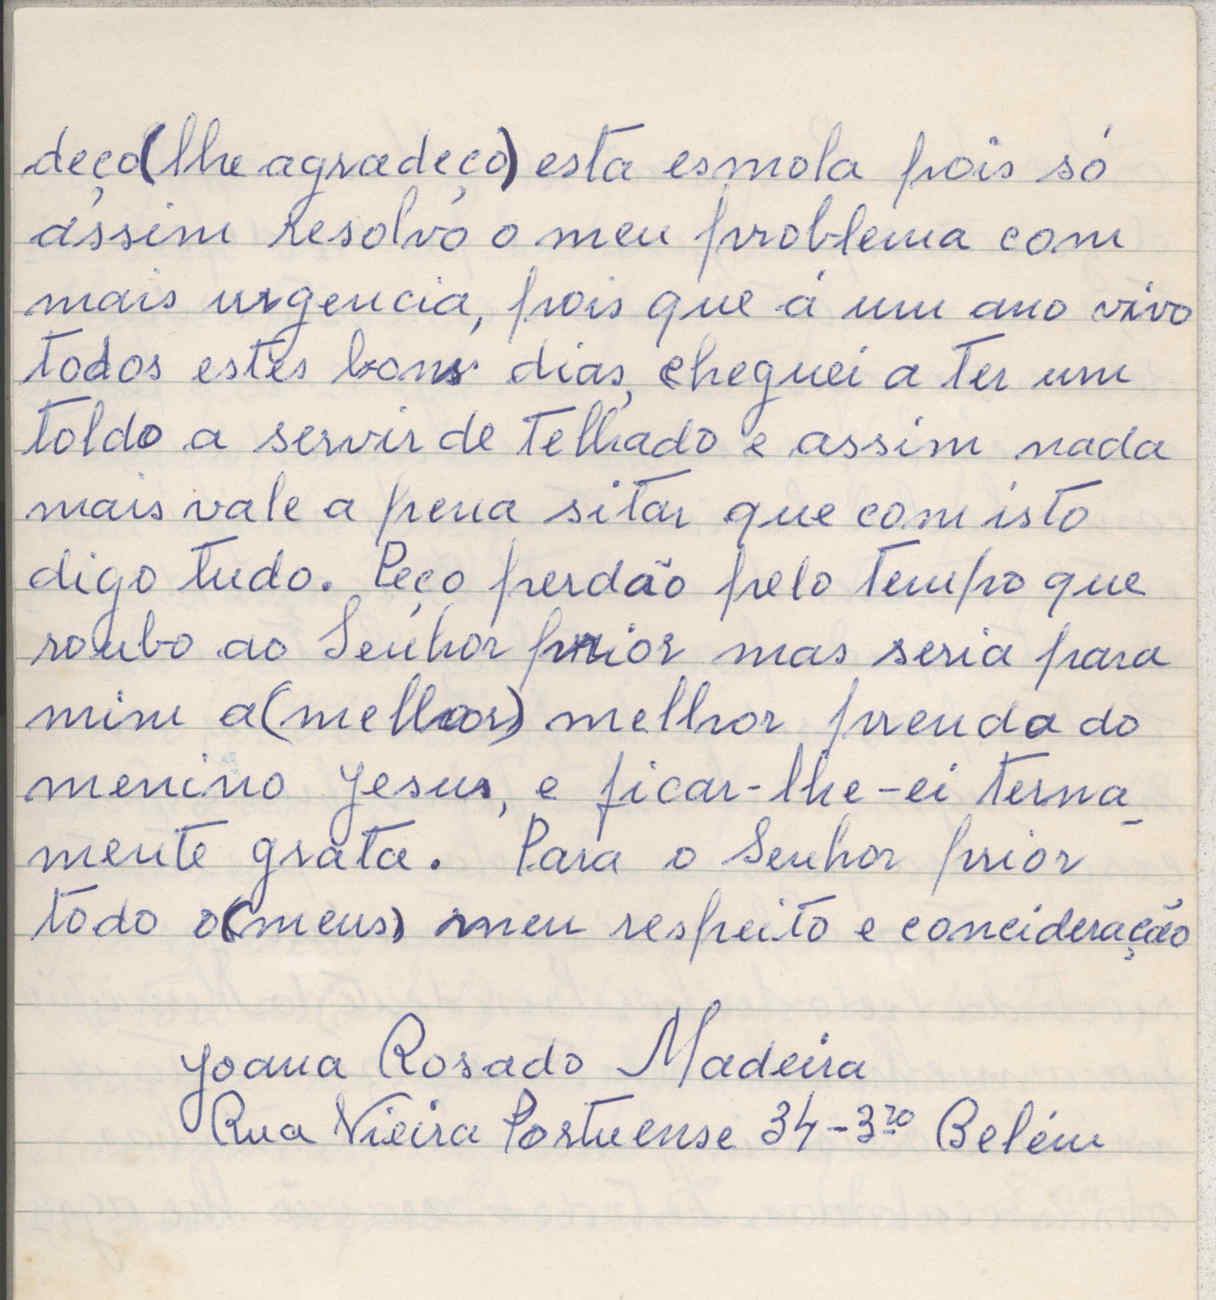 deço(lhe agradeço) esta esmola pois só
assim resolvo o meu problema com
mais urgencia, pois que á um ano vivo
todos estes bons dias, cheguei a ter um
toldo a servir de telhado e assim nada
mais vale a pena sitar que com isto
digo tudo. Peço perdão pelo tempo que
roubo ao Senhor prior mas seria para
mim a(mellor) melhor prenda do
menino Jesus, e ficar-lhe-ei terna_
mente grata. Para o Senhor prior
todo o(meus) meu respeito e concideração
Joana Rosado Madeira
Rua Vieira Portuense 34-3ro Belém